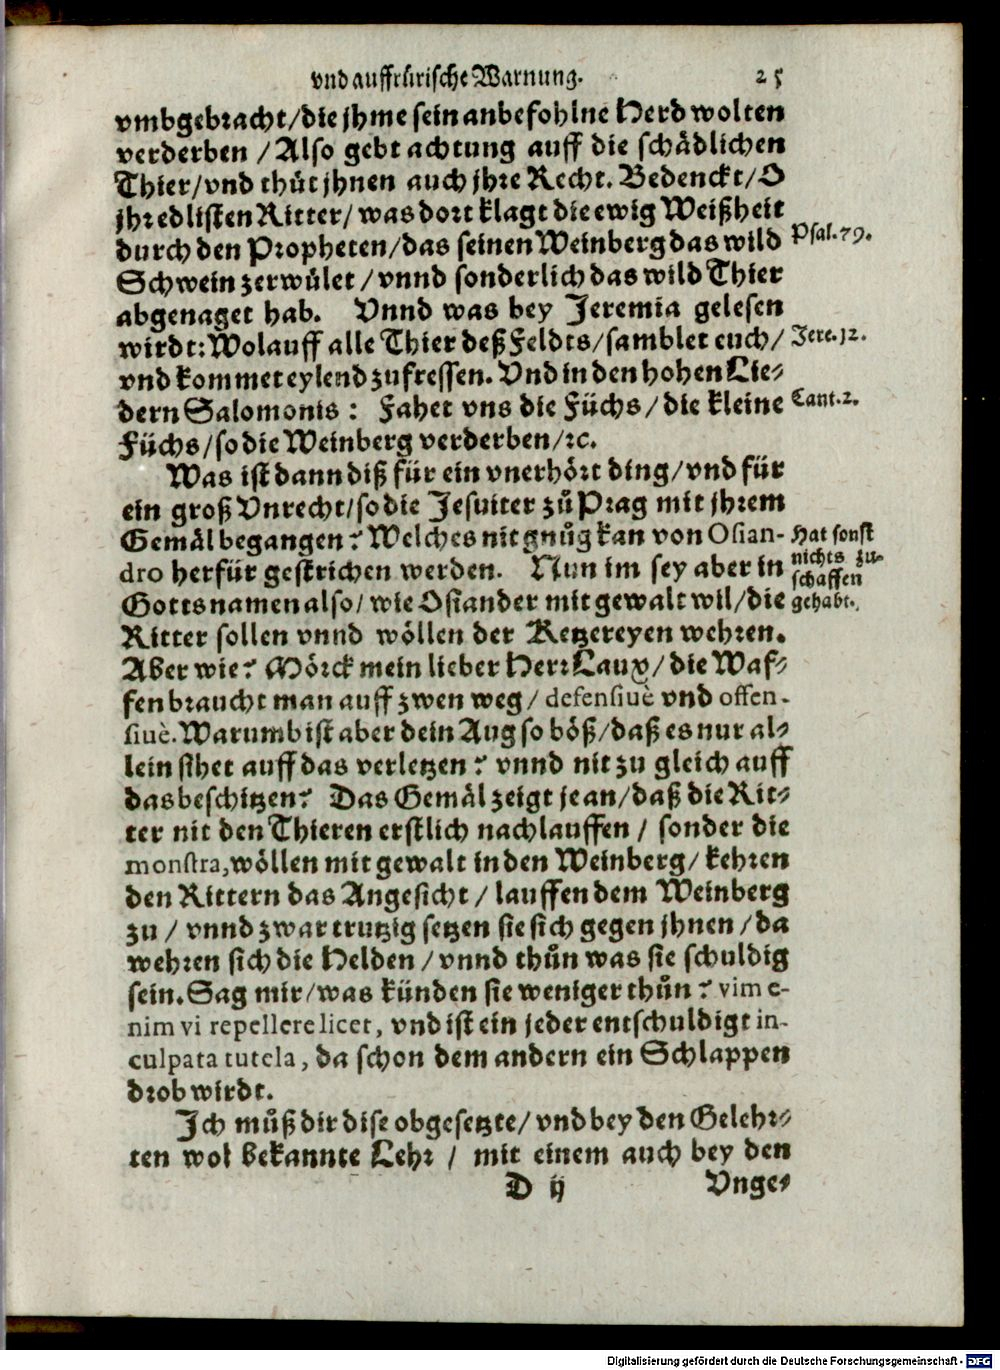 vnd auffrürische Warnung. 25
vmbgebracht/die jhme sein anbefohlne Herd wolten
verderben / Also gebt achtung auff die schädlichen
Thier/vnd thůt jhnen auch jhre Recht. Bedenckt/O
jhr edlisten Ritter/ was dort klagt die ewig Weißheit
durch den Propheten/das seinen Weinberg das wild Psal. 79.
Schwein zerwület / vnnd sonderlich das wild Thier
abgenaget hab. Vnnd was bey Jeremia gelesen
wirdt: Wolauff alle Thier deß Feldts/samblet euch/ Jere. 12.
vnd kommet eylend zu fressen. Vnd in den hohen Lie-
dern Salomonis : Fahet vns die Füchs / die kleine Cant. 2.
Füchs/so die Weinberg verderben/ꝛc.
Was ist dann diß für ein vnerhört ding/vnd für
ein groß Vnrecht/so die Jesuiter zů Prag mit jhrem
Gemäl begangen? Welches nit gnůg kan von Osian- Hat sonst
dro herfür gestrichen werden. Nun im sey aber in nichts zu-
schaffen
Gotts namen also/ wie Osiander mit gewalt wil/die gehabt.
Ritter sollen vnnd wöllen der Ketzereyen wehren.
Aber wie? Mörck mein lieber Herr Laux/ die Waf-
fen braucht man auff zwen weg/ defensiuè vnd offen-
siuè. Warumb ist aber dein Aug so böß/daß es nur al-
lein sihet auff das verletzen? vnnd nit zu gleich auff
das beschitzen? Das Gemäl zeigt jean/daß die Rit-
ter nit den Thieren erstlich nachlauffen / sonder die
monstra, wöllen mit gewalt in den Weinberg/ kehren
den Rittern das Angesicht / lauffen dem Weinberg
zu / vnnd zwar trutzig setzen sie sich gegen jhnen / da
wehren sich die Helden / vnnd thůn was sie schuldig
sein. Sag mir/was künden sie weniger thůn? vim e-
nim vi repellere licet, vnd ist ein jeder entschuldigt in-
culpata tutela, da schon dem andern ein Schlappen
drob wirdt.
Ich můß dir dise obgesetzte/ vnd bey den Gelehr-
ten wol bekannte Lehr / mit einem auch bey den
D ij Vnge-
Digitalisierung gefördert durch die Deutsche Forschungsgemeinschaft - DFG